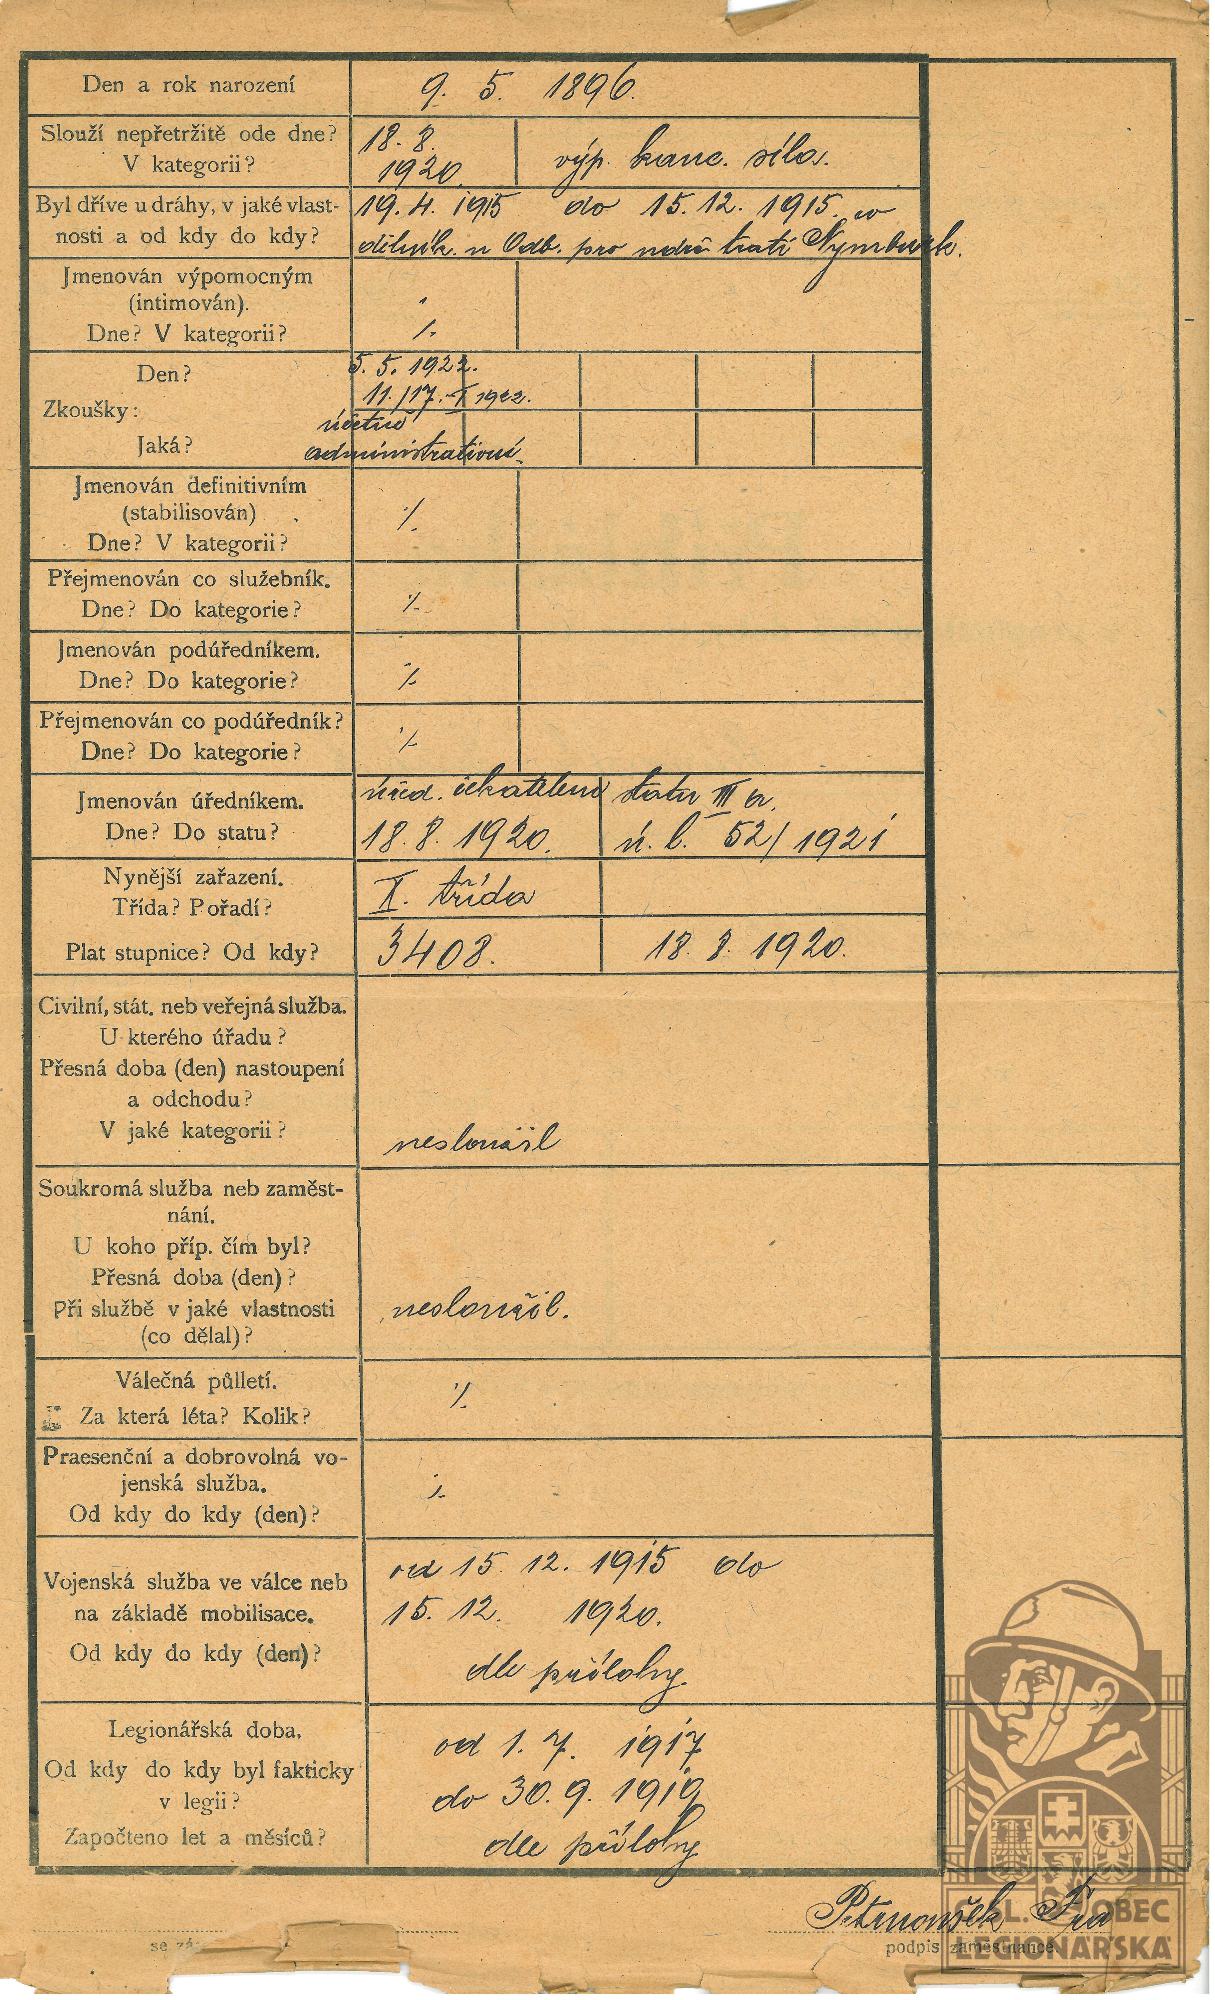 Den a rok narození 9. 5. 1896.
Slouží nepřetržitě ode dne? 18. 8.
V kategorii? 1920. výp. kanc. síla.
Byl dříve u dráhy, v jaké vlast- 19. 4. 1915 do 15. 12. 1915.
nosti a od kdy do kdy? dělník. u Odb. pro udrž trati Nymburk.
Jmenován výpomocným
(intimován).
Dne? V kategorii? ·/.
Den? 5. 5. 1922.
11./17.-I 1922.
Zkoušky: účetní
Jaká? administrativní.
Jmenován definitivním
(stabilisován) ·/.
Dne? V kategorii?
Přejmenován co služebník.
Dne? Do kategorie? ·/.
Jmenován podúředníkem.
Dne? Do kategorie? ·/.
Přejmenován co podúředník?
Dne? Do kategorie? ·/.
Jmenován úředníkem. úřed. čekatelem statu III a.
Dne? Do statu? 18. 8. 1920. ú. l. 52/1921
Nynější zařazení. X. třída
Třída? Pořadí?
Plat stupnice? Od kdy? 3408. 18. 8. 1920.
Civilní, stát. neb veřejná služba.
U kterého úřadu?
Přesná doba (den) nastoupení
a odchodu?
V jaké kategorii? nesloužil
Soukromá služba neb zaměst-
nání.
U koho příp. čím byl?
Přesná doba (den)?
Při službě v jaké vlastnosti nesloužil.
(co dělal)?
Válečná půlletí. ·/.
Za která léta? Kolik?
Praesenční a dobrovolná vo-
jenská služba. ·/.
Od kdy do kdy (den)?
od 15. 12. 1915 do
Vojenská služba ve válce neb
na základě mobilisace. 15. 12. 1920.
Od kdy do kdy (den)? dle přílohy.
Legionářská doba. od 1. 7. 1917
Od kdy do kdy byl fakticky
v legii? do 30. 9. 1919
Započteno let a měsíců? dle přílohy
Petrnoušek Fra
podpis zaměstnance.
ČSL. OBEC
LEGIONÁŘSKÁ